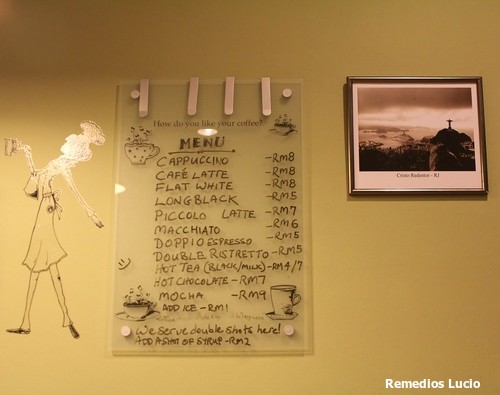 How do you like your coffee?
MENU
CAPPUCCINO -RM8
CAFÉ LATTE -RM8
FLAT WHITE -RM8
LONG BLACK -RM5
PICCOLO LATTE -RM7
MACCHIATO -RM6
DOPPIO ESPRESSO -RM5
DOUBLE RISTRETTO -RM5
HOT TEA (BLACK/MILK) -RM4/7
HOT CHOCOLATE -RM7
MOCHA -RM9
ADD ICE -RM1
We serve double shots here!
ADD A SHOT OF SYRUP -RM2
Cristo Redentor - RJ
Remedios Lucio